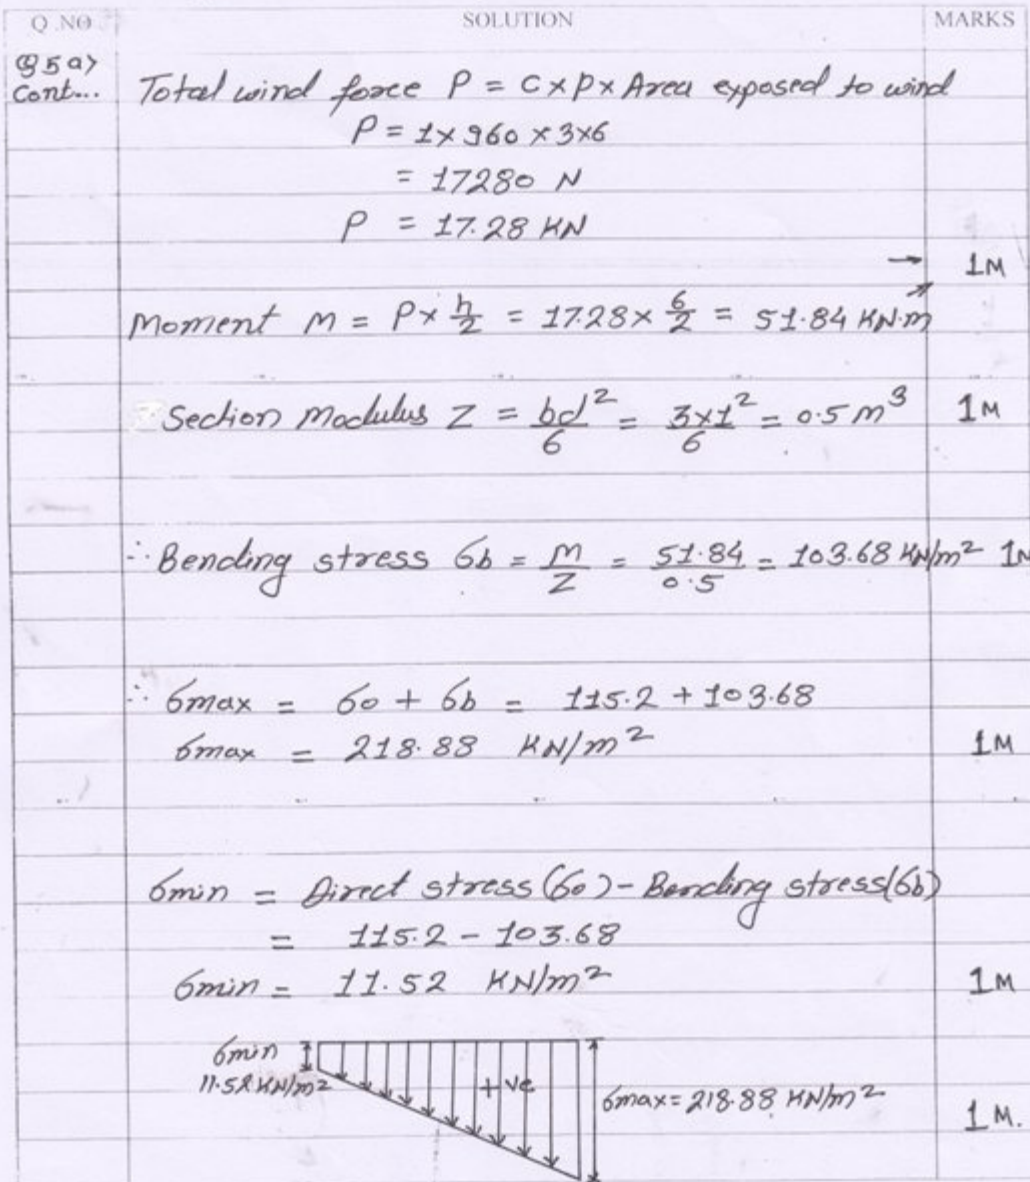 Q.NO.
SOLUTION
MARKS
Q5a)
Cont...
Total wind force P = C x p x Area exposed to wind
P = 1 x 960 x 3x6
= 17280 N
P = 17.28 KN
→ 1M
Moment M = P x h/2 = 17.28 x 6/2 = 51.84 KN.m
Section Modulus Z = bd²/6 = 3x1²/6 = 0.5 m³ 1M
∴ Bending stress σb = M/Z = 51.84/0.5 = 103.68 KN/m² 1M
∴ σmax = σo + σb = 115.2 + 103.68
σmax = 218.88 KN/m² 1M
σmin = Direct stress (σo) - Bending stress (σb)
= 115.2 - 103.68
σmin = 11.52 KN/m² 1M
σmin
11.52 KN/m²
+ve
σmax = 218.88 KN/m²
1M.